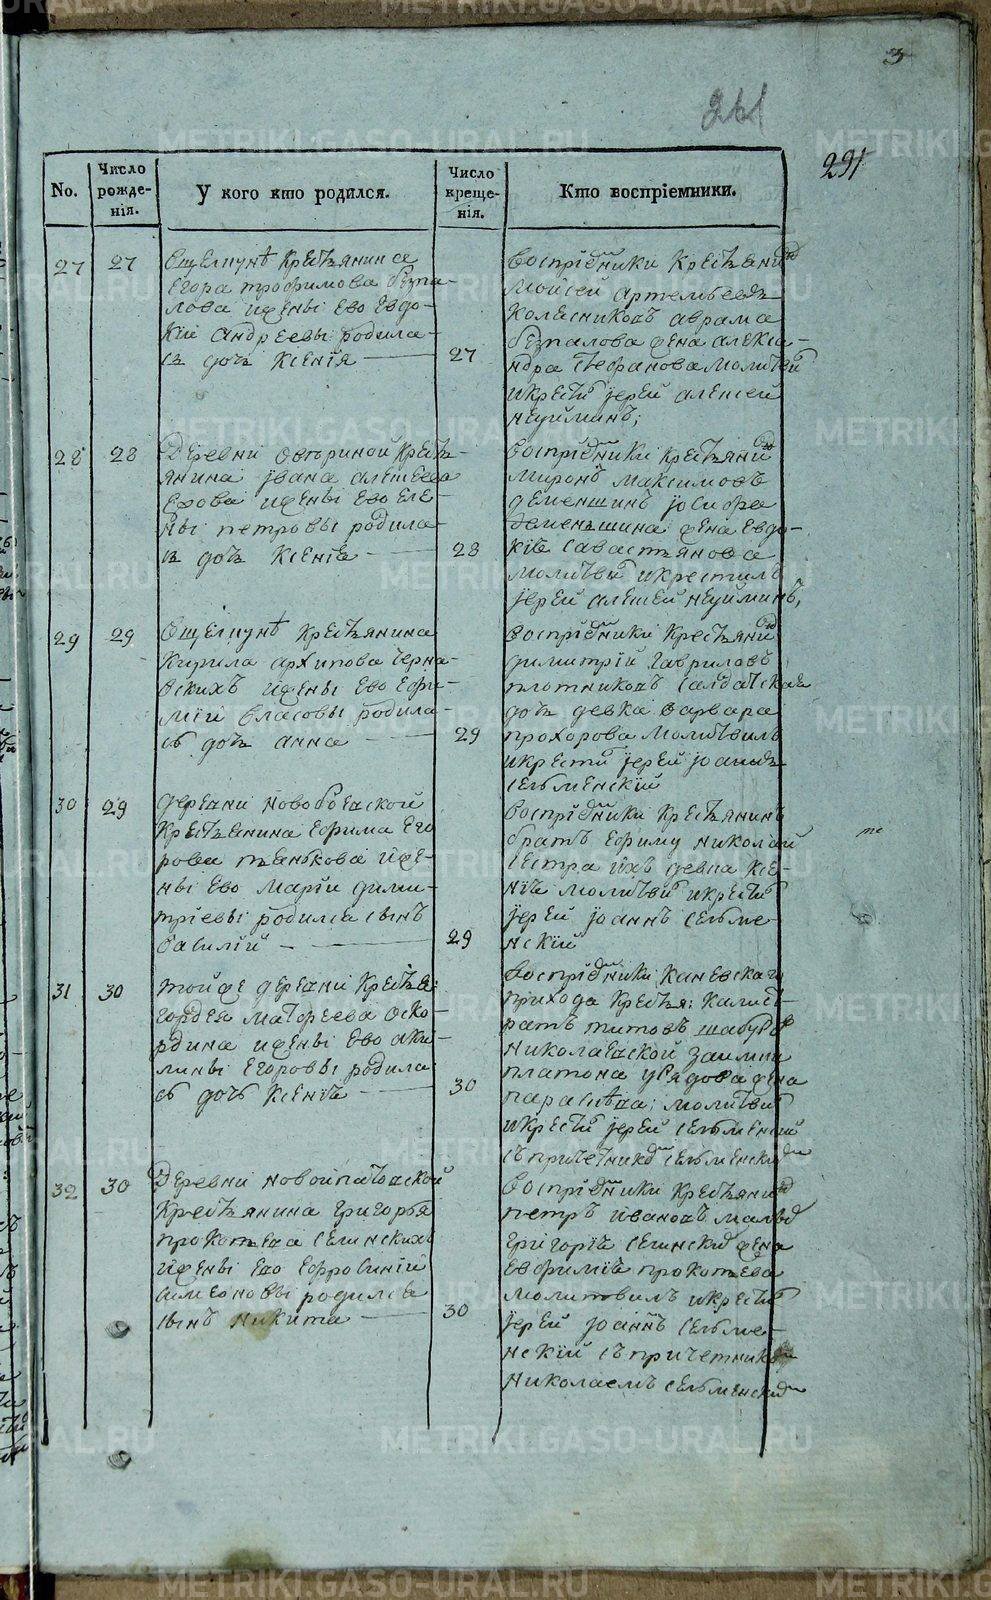 3
291
No.
Число рожде-нія.
У кого кто родился.
Число креще-нія.
Кто воспріемники.
27
27
Егора трофимова
лова ижены Ево Евдо-
кіи Андреевы родила-
сь дочь Ксенія
27
Моисей Артемьевъ
Колесниковъ аврама
жена алекса-
ндра Стефанова молитвил
икрестил іерей алексей
неуйминъ;
28
28
Деревни Овъриной Кресть-
янина івана алексеева
ижены Ево Еле-
ны петровы родила-
сь дочь Ксенія
28
Воспріемники Крестьянин
миронъ максимовъ
деменшинъ іосифа
деменьшина жена Евдо-
кіѣ Савастьянова
молитвил икрестилъ
іерей алексей неуйминъ,
29
29
Крестьянина
Кирила архипова Черна-
Вскихъ ижены Ево Ефи-
міи Власовы родила-
сь дочь анна
29
Воспріемники Крестьянин
димитрій гавриловъ
плотниковъ Салдатская
дочь девка варвара
прохорова молитвилъ
икрестил іерей іоаннъ
Сельменскій
30
29
деревни новоБоевской
Крестьянина Ефима Его
рова пеньkова иже-
ны Ево маріи дими-
тріевы родился сынъ
Василій
29
Воспріемники Крестьянинъ
братъ Ефиму николай
Сестра ихъ девка Ксе-
нія молитвил икрестил
іерей іоаннъ Сельме-
нскій
31
30
тойже деревни Крестья:
гордея матфеева Оско-
рдина ижены Ево аки-
лины Егоровы родила
сь дочь Ксенія
30
Воспріемники Каневскаго
прихода Крестья: Калист-
ратъ титовъ
николаевской заимки
платона жена
параскева; молитвил
икрестил іерей Сельменскій
Съ причетником Сельменским
32
30
Деревни новоипатовской
Крестьянина григорья
прокопьева Селинскихъ
ижены Ево Ефросиніи
Симеоновы родился
сынъ никита
30
Воспріемники Крестьянин
петръ ивановъ
григорія Селинских жена
Евфимія прокопьева
молитвилъ икрестил
іерей іоаннъ Сельме-
нскій Съ причетником
николаемъ Сельменским
METRIKI.GASO-URAL.RU